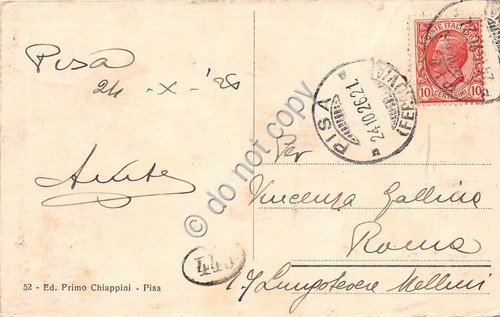 Pisa
24 - X - '26
52 - Ed. Primo Chiappini - Pisa
POSTE ITALIANE
10 CENT 10
PISA
24.10.26.21
(FERROVIA)
Per
Vincenza Gallina
Roma
17 Lungotevere Mellini
do not copy